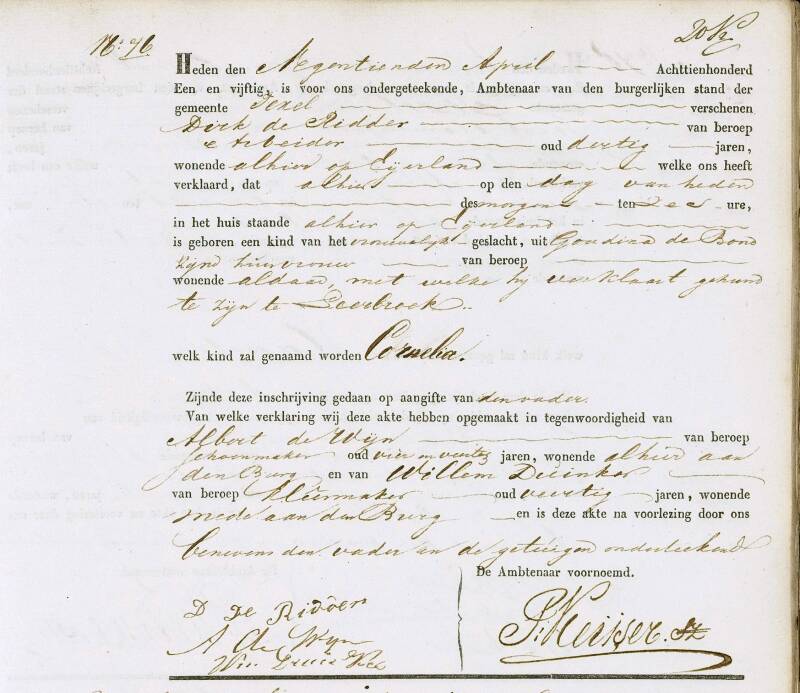 N: 76.
Heden den Negentienden April Achttienhonderd
Een en vijftig, is voor ons ondergeteekende, Ambtenaar van den burgerlijken stand der
gemeente Texel verschenen
Dirk de Ridder van beroep
Arbeider oud dertig jaren,
wonende alhier op Eijerland welke ons heeft
verklaard, dat alhier op den dag van heden
des morgens ten Zes ure,
in het huis staande alhier op Eijerland
is geboren een kind van het vrouwelijk geslacht, uit Goudina de Bond
zijne huisvrouw van beroep
wonende aldaar, met welke hij verklaart gehuwd
te zijn te Leerbroek.
welk kind zal genaamd worden Cornelia.
Zijnde deze inschrijving gedaan op aangifte van den vader.
Van welke verklaring wij deze akte hebben opgemaakt in tegenwoordigheid van
Albert de Wijn van beroep
schoenmaker oud vier en veertig jaren, wonende alhier aan
den Burg en van Willem Duinker
van beroep kleermaker oud veertig jaren, wonende
mede aan den Burg en is deze akte na voorlezing door ons
benevens den vader en de getuigen onderteekend
De Ambtenaar voornoemd.
D De Ridder
A de Wijn
Wm Duinker
P. Keijser. Sz